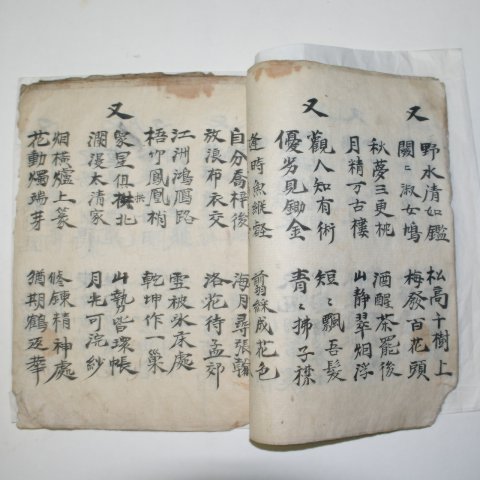 又
野水清如鑑 松高千樹上
關〻淑女鳩 梅發百花頭
秋夢三更桃 酒醒茶罷後
月精万古樓 山靜翠烟浮
又
觀人知有術 短〻飄吾髮
優劣見鋤金 青〻拂子襟
逢時魚縱壑 剪綵成花色
自分喬梓後 海月尋張翰
放浪布衣交 洛花待孟郊
江洲鴻鴈路 雪被冰床處
梧竹鳳凰梢 乾坤作一巢
又
衆星俱拱北 山勢皆環帳
瀾漫太清家 月光可浣紗
烟橫爐上篆 修鍊精神處
花動燭瑞芽 猶期鶴返華